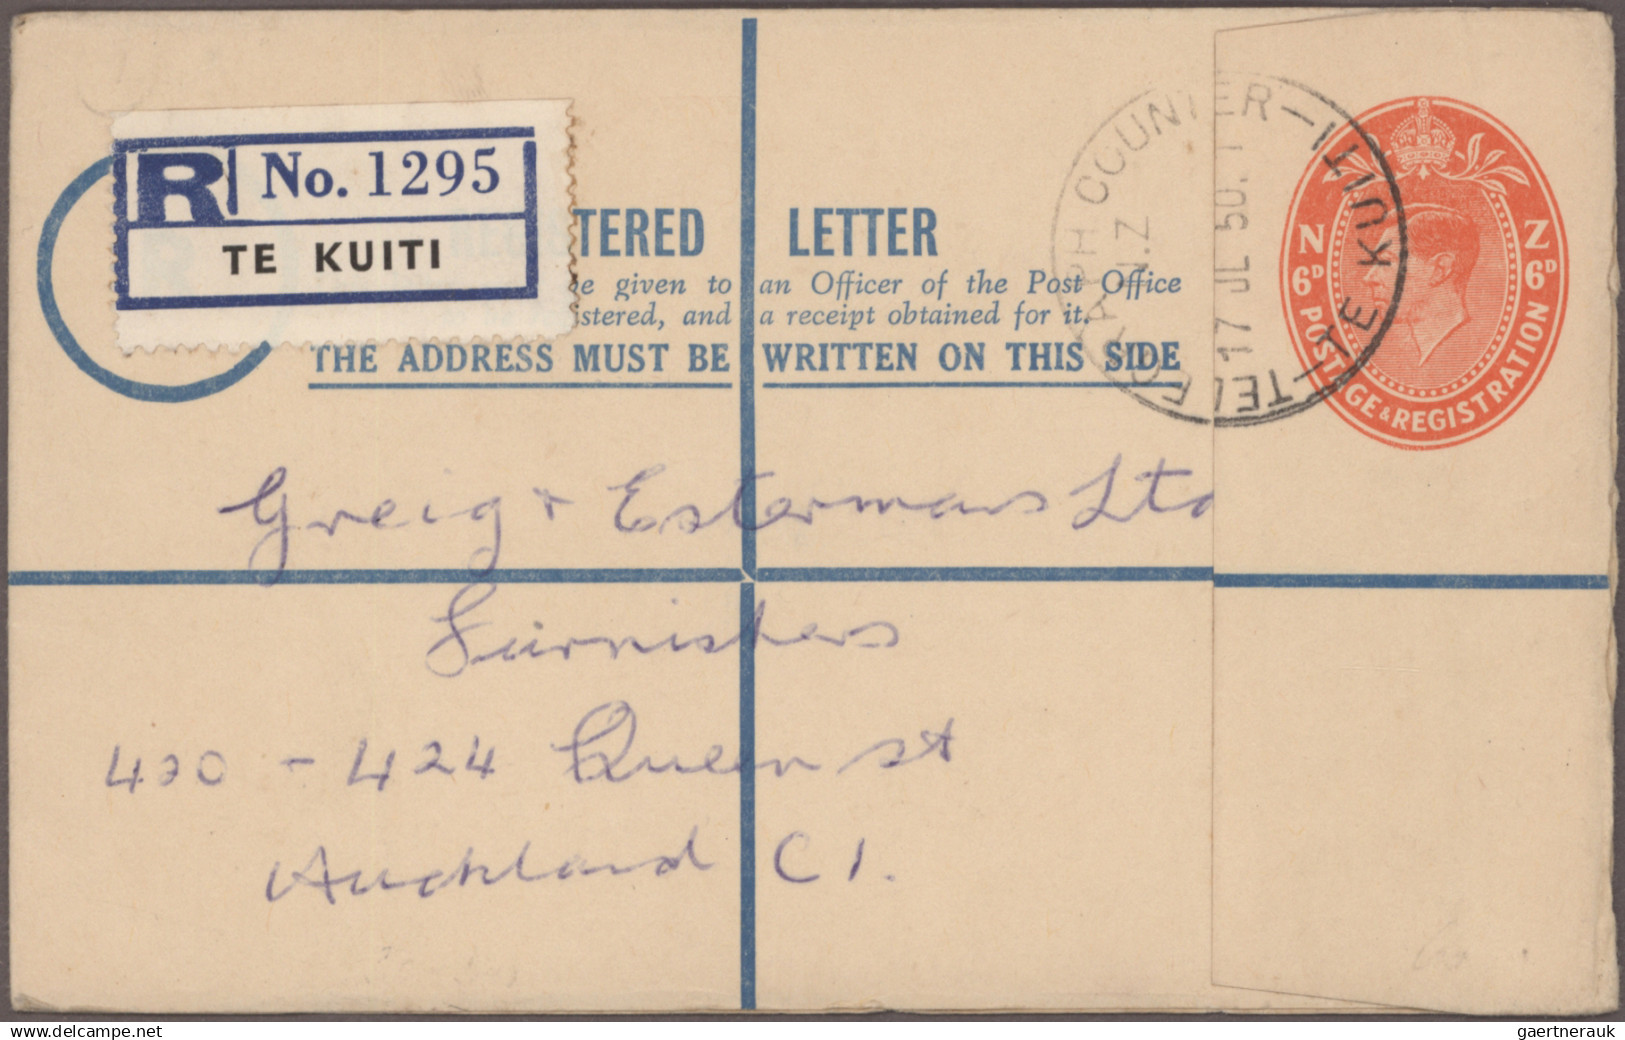 R No. 1295
TE KUITI
TERED LETTER
be given to an Officer of the Post Office
istered, and a receipt obtained for it.
THE ADDRESS MUST BE WRITTEN ON THIS SIDE
TELEGRAPH COUNTER — TE KUITI —
N.Z
17 JL 50. 1
N Z
6D 6D
POSTAGE & REGISTRATION
Greig + Estermans Ltd
Furnishers
420 - 424 Queen st
Auckland C1.
www.delcampe.net
gaertnerauk